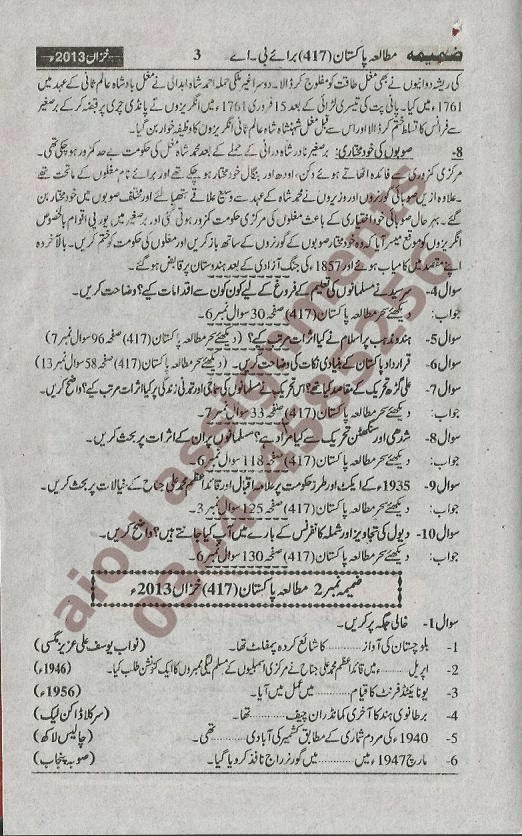 ضمیمہ مطالعہ پاکستان (417) برائے بی۔اے 3 خزاں 2013ء
کی ریشہ دوانیوں نے بھی مغل طاقت کو مفلوج کر ڈالا۔ دوسرا غیر ملکی حملہ احمد شاہ ابدالی نے مغل بادشاہ عالم ثانی کے عہد میں
1761ء میں کیا۔ پانی پت کی تیسری لڑائی کے بعد 15 فروری 1761ء میں انگریزوں نے پانڈی چری پر قبضہ کر کے برصغیر
سے فرانس کا تسلط ختم کر ڈالا اور اس سے قبل مغل شہنشاہ شاہ عالم ثانی انگریزوں کا وظیفہ خوار بن گیا۔
8- صوبوں کی خود مختاری: برصغیر نادر شاہ درانی کے حملے کے بعد محمد شاہ مغل کی حکومت بے حد کمزور ہو چکی تھی۔
مرکزی کمزوری سے فائدہ اٹھاتے ہوئے دکن، اودھ اور بنگال خود مختار ہو چکے تھے اور برائے نام مغلوں کے ماتحت تھے
علاوہ ازیں صوبائی گورنروں اور وزیروں نے محمد شاہ کے عہد سے وسیع علاقے ہتھیا لئے اور مختلف صوبوں میں خود مختار بن
گئے۔ بہر حال صوبائی خود اختیاری کے باعث مغلوں کی مرکزی حکومت کمزور ہوتی گئی اور برصغیر میں یورپی اقوام بالخصوص
انگریزوں کو موقع میسر آیا کہ وہ خود مختار صوبوں کے گورنروں کے ساتھ باز کریں اور مغلوں کی حکومت کو ختم کریں۔ بالآخر وہ
اپنے مقصد میں کامیاب ہوئے اور 1857ء کی جنگ آزادی کے بعد ہندوستان پر قابض ہو گئے۔
سوال 4- سرسید نے مسلمانوں کی تعلیم کے فروغ کے لیے کون کون سے اقدامات کیے؟ وضاحت کریں۔
جواب: دیکھئے سحر مطالعہ پاکستان (417) صفحہ 30 سوال نمبر 6۔
سوال 5- ہندو مذہب پر اسلام نے کیا اثرات مرتب کیے؟ (دیکھئے سحر مطالعہ پاکستان (417) صفحہ 96 سوال نمبر 7)
سوال 6- قرارداد پاکستان کے بنیادی نکات کی وضاحت کریں۔ (دیکھئے سحر مطالعہ پاکستان (417) صفحہ 58 سوال نمبر 13)
سوال 7- علی گڑھ تحریک کے مقاصد کیا تھے؟ اس تحریک نے مسلمانوں کی سماجی اور تمدنی زندگی پر کیا اثرات مرتب کیے؟ واضح کریں۔
جواب: دیکھئے سحر مطالعہ پاکستان (417) صفحہ 33 سوال نمبر 7۔
سوال 8- شدھی اور سنگھٹن تحریک سے کیا مراد ہے؟ مسلمانوں پر ان کے اثرات پر بحث کریں۔
جواب: دیکھئے سحر مطالعہ پاکستان (417) صفحہ 118 سوال نمبر 6۔
سوال 9- 1935ء کے ایکٹ اور طرز حکومت پر علامہ اقبال اور قائد اعظم محمد علی جناح کے خیالات پر بحث کریں۔
جواب: دیکھئے سحر مطالعہ پاکستان (417) صفحہ 125 سوال نمبر 3۔
سوال 10- ویول کی تجاویز اور شملہ کانفرنس کے بارے میں آپ کیا جانتے ہیں؟ واضح کریں۔
جواب: دیکھئے سحر مطالعہ پاکستان (417) صفحہ 130 سوال نمبر 6۔
ضمیمہ نمبر 2 مطالعہ پاکستان (417) خزاں 2013ء
سوال 1- خالی جگہ پر کریں۔
1- بلوچستان کی آواز ............ کا شائع کردہ پمفلٹ تھا۔ (نواب یوسف علی عزیز مگسی)
2- اپریل ........ء میں قائد اعظم محمد علی جناح نے مرکزی اسمبلیوں کے مسلم لیگی ممبروں کا ایک کنونشن طلب کیا۔ (1946ء)
3- یونائیٹڈ فرنٹ کا قیام ............ میں عمل میں آیا۔ (1956ء)
4- برطانوی ہند کا آخری کمانڈر ان چیف ............ تھا۔ (سر کلاڈ آکن لیک)
5- 1940ء کی مردم شماری کے مطابق کشمیر کی آبادی ............ تھی۔ (چالیس لاکھ)
6- مارچ 1947ء میں ............ میں گورنر راج نافذ کر دیا گیا۔ (صوبہ پنجاب)
aiou assignments